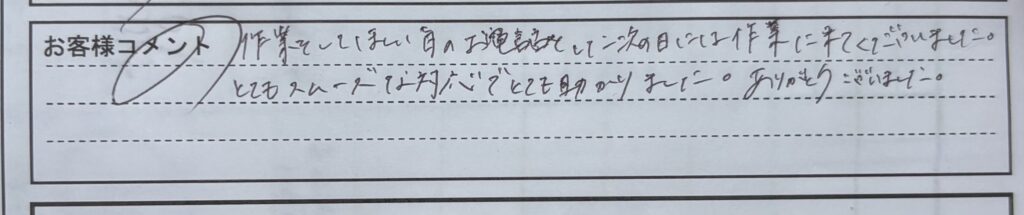 お客様コメント 作業をしてほしい旨のお電話をして二次の日には作業に来てくださいました。
とてもスムーズな対応でとても助かりました。ありがとうございました。